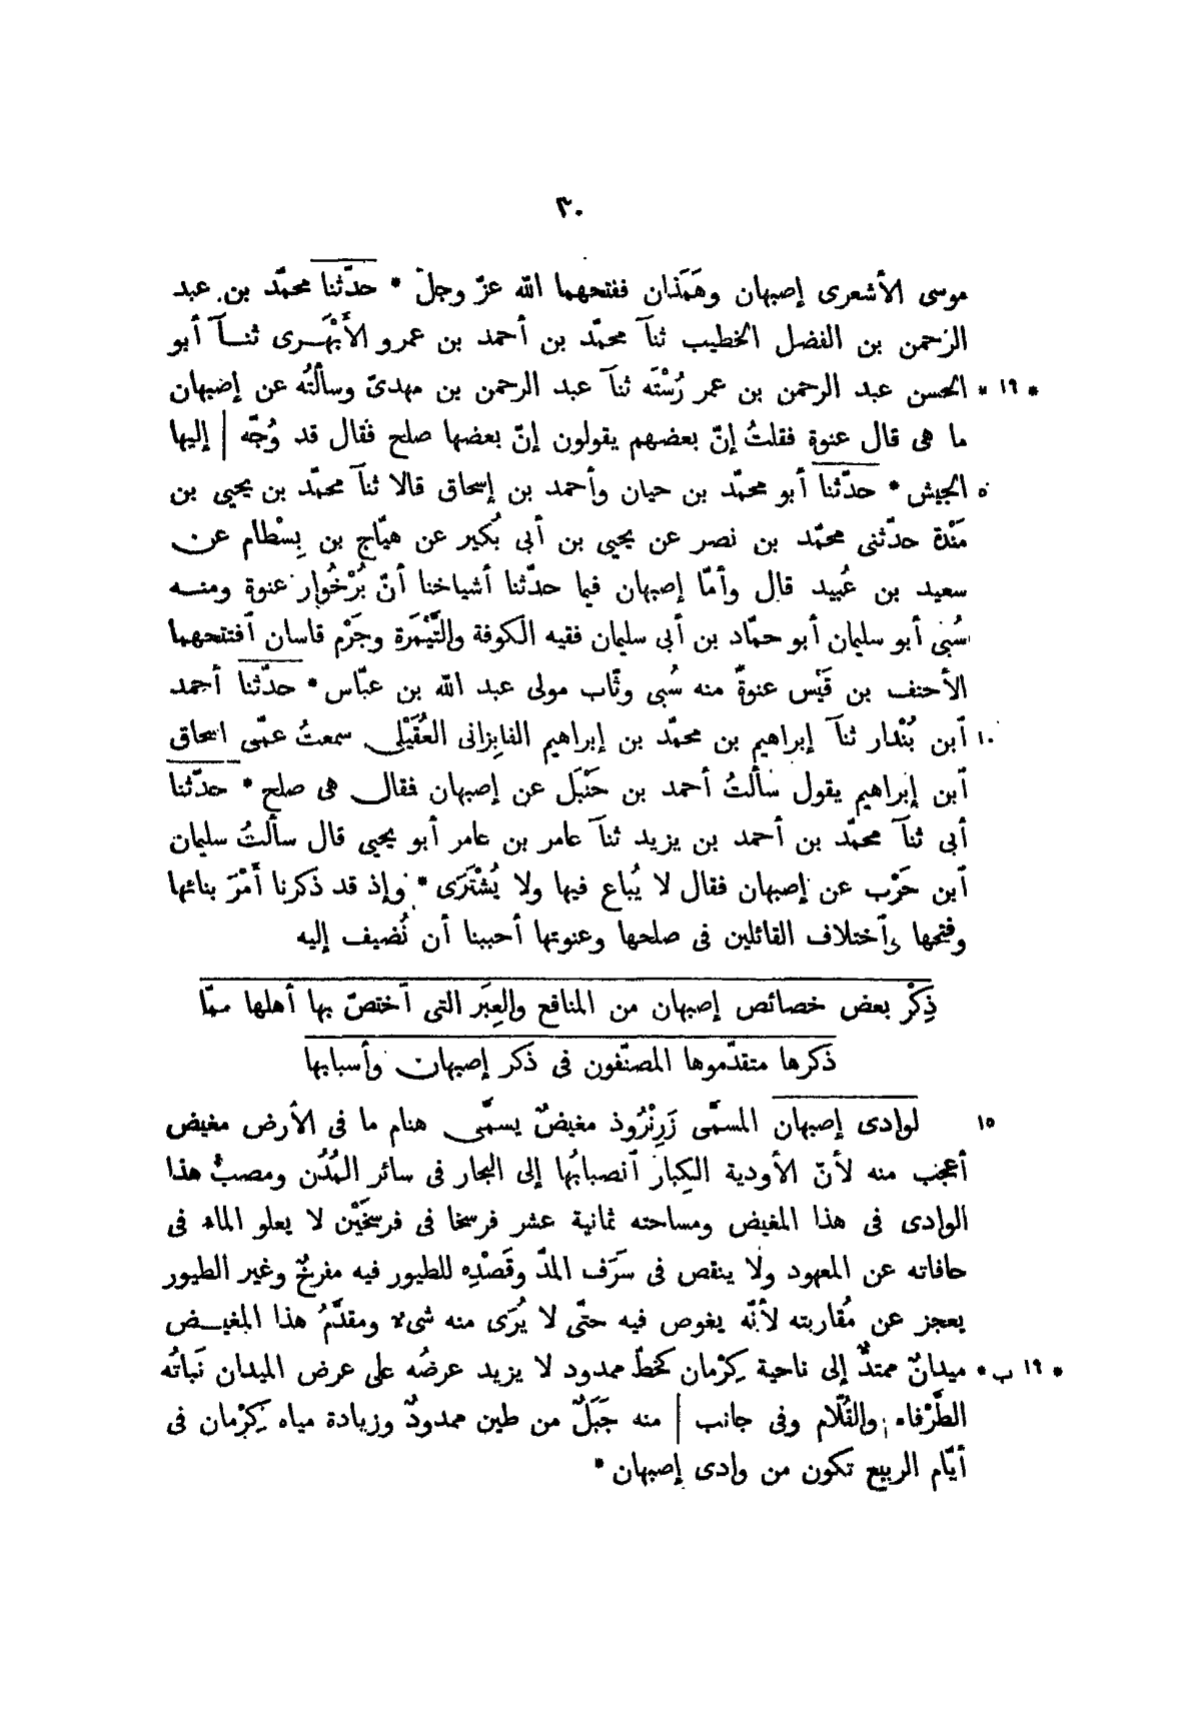 ٣٠
موسى الأشعرى إصبهان وهَمَذان ففتحهما الله عزّ وجلّ * حدّثنا محمّد بن عبد
الرحمن بن الفضل الخطيب ثنآ محمّد بن أحمد بن عمرو الأَبْهَرى ثنآ أبو
* ١٩ * الحسن عبد الرحمن بن عمر رُسْتَه ثنآ عبد الرحمن بن مهدىّ وسألتُه عن إصبهان
ما هى قال عنوة فقلتُ إنّ بعضهم يقولون إنّ بعضها صلح فقال قد وُجّه | إليها
٥ الجيش * حدّثنا أبو محمّد بن حيان وأحمد بن إسحاق قالا ثنآ محمّد بن يحيى بن
مَنْدة حدّثنى محمّد بن نصر عن يحيى بن أبى بُكير عن هيّاج بن بِسْطام عن
سعيد بن عُبيد قال وأمّا إصبهان فيما حدّثنا أشياخنا أنّ بُرْخُوار عنوة ومنه
سُبى أبو سليمان أبو حمّاد بن أبى سليمان فقيه الكوفة والتَّيْمَرة وجَرْم قاسان ٱفتتحهما
الأحنف بن قَيْس عنوةً منه سُبى وثّاب مولى عبد الله بن عبّاس * حدّثنا أحمد
١٠ ٱبن بُنْدار ثنآ إبراهيم بن محمّد بن إبراهيم الفابِزانى العُقَيْلى سمعتُ عمّى اسحاق
ٱبن إبراهيم يقول سألتُ أحمد بن حَنْبَل عن إصبهان فقال هى صلح * حدّثنا
أبى ثنآ محمّد بن أحمد بن يزيد ثنآ عامر بن عامر أبو يحيى قال سألتُ سليمان
ٱبن حَرْب عن إصبهان فقال لا يُباع فيها ولا يُشْتَرَى * وإذ قد ذكرنا أَمْرَ بنائها
وفتحها وٱختلاف القائلين فى صلحها وعنوتها أحببنا أن نُضيف إليه
ذِكْر بعض خصائص إصبهان من المنافع والعِبَر التى ٱختصّ بها أهلها ممّا
ذكرها متقدّموها المصنّفون فى ذكر إصبهان وأسبابها
١٥ لوادى إصبهان المسمَّى زَرِنْرُوذ مغيضٌ يسمَّى هنام ما فى الأرض مغيض
أعجب منه لأنّ الأودية الكِبار ٱنصبابُها إلى البحار فى سائر المُدُن ومصبّ هذا
الوادى فى هذا المغيض ومساحته ثمانية عشر فرسخا فى فرسخَيْن لا يعلو الماء فى
حافاته عن المعهود ولا ينقص فى سَرَف المدّ وقَصْدِه للطيور فيه مفرخٌ وغير الطيور
يعجز عن مُقاربته لأنّه يغوص فيه حتّى لا يُرَى منه شىء ومقدَّمُ هذا المغيض
* ١٩ ب * ميدانٌ ممتدٌّ إلى ناحية كِرْمان كخطّ ممدود لا يزيد عرضُه على عرض الميدان نَباتُه
الطَّرْفاء والقُلّام وفى جانب | منه جَبَلٌ من طين ممدودٌ وزيادة مياه كِرْمان فى
أيّام الربيع تكون من وادى إصبهان *